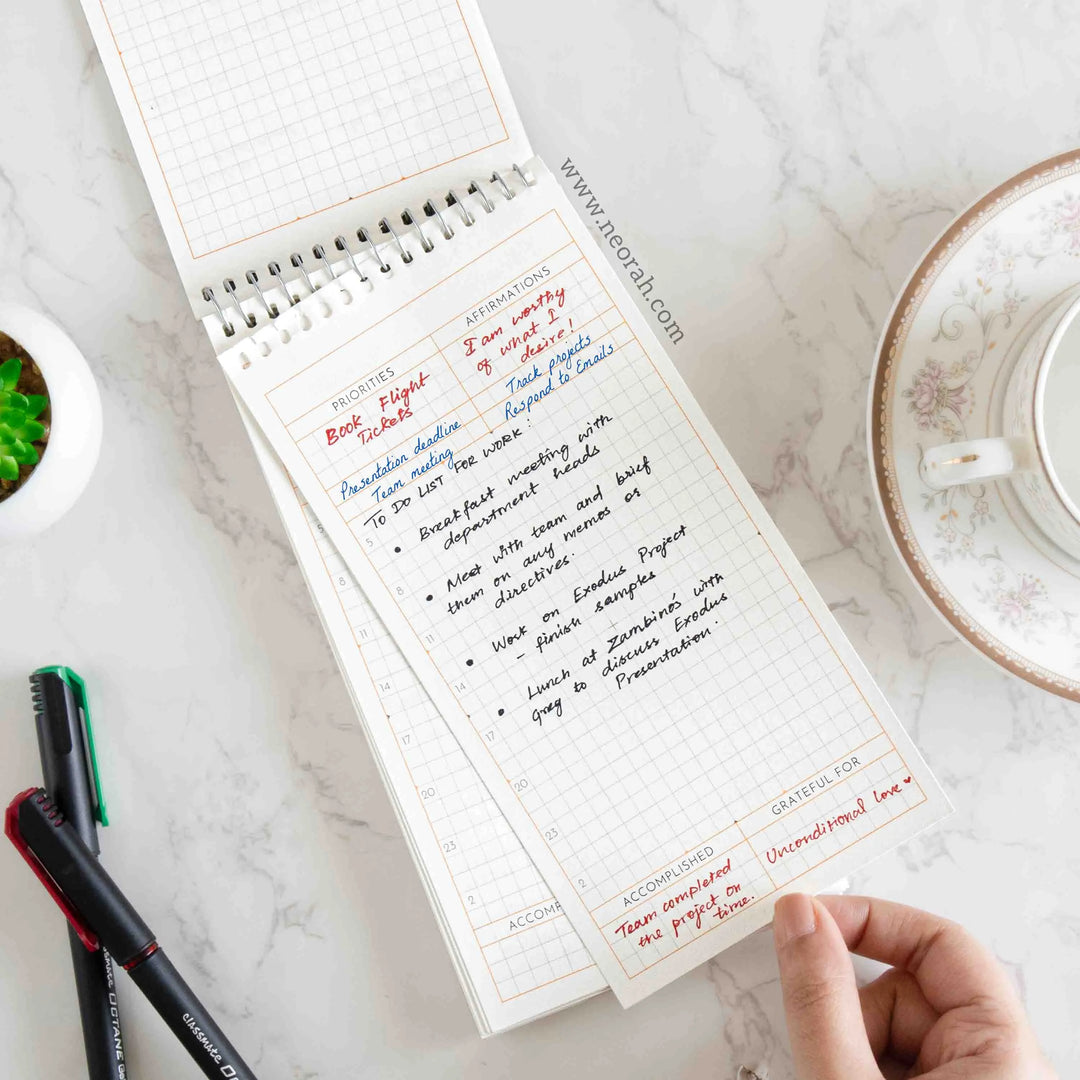 www.neorah.com
PRIORITIES
Book Flight
Tickets
AFFIRMATIONS
I am worthy
of what I
desire!
Presentation deadline
Team meeting
Track projects
Respond to Emails
TO DO LIST FOR WORK:
• Breakfast meeting with
department heads
• Meet with team and brief
them on any memos or
directives.
• Work on Exodus Project
- finish samples
• Lunch at Zambino's with
Greg to discuss Exodus
Presentation.
5
8
11
14
17
20
23
2
ACCOMPLISHED
Team completed
the project on
time.
GRATEFUL FOR
Unconditional love ♥
5
8
11
14
17
20
23
2
ACCOMP
classmate OCTANE
classmate OCTANE G